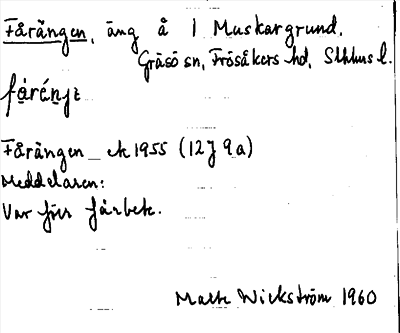 Fårängen, äng å 1 Muskargrund,
Gräsö sn, Frösåkers hd, Sthlms l.
Fårängen ek 1955 (12J 9a)
Meddelaren:
Var förr fårbete.
Malte Wickström 1960